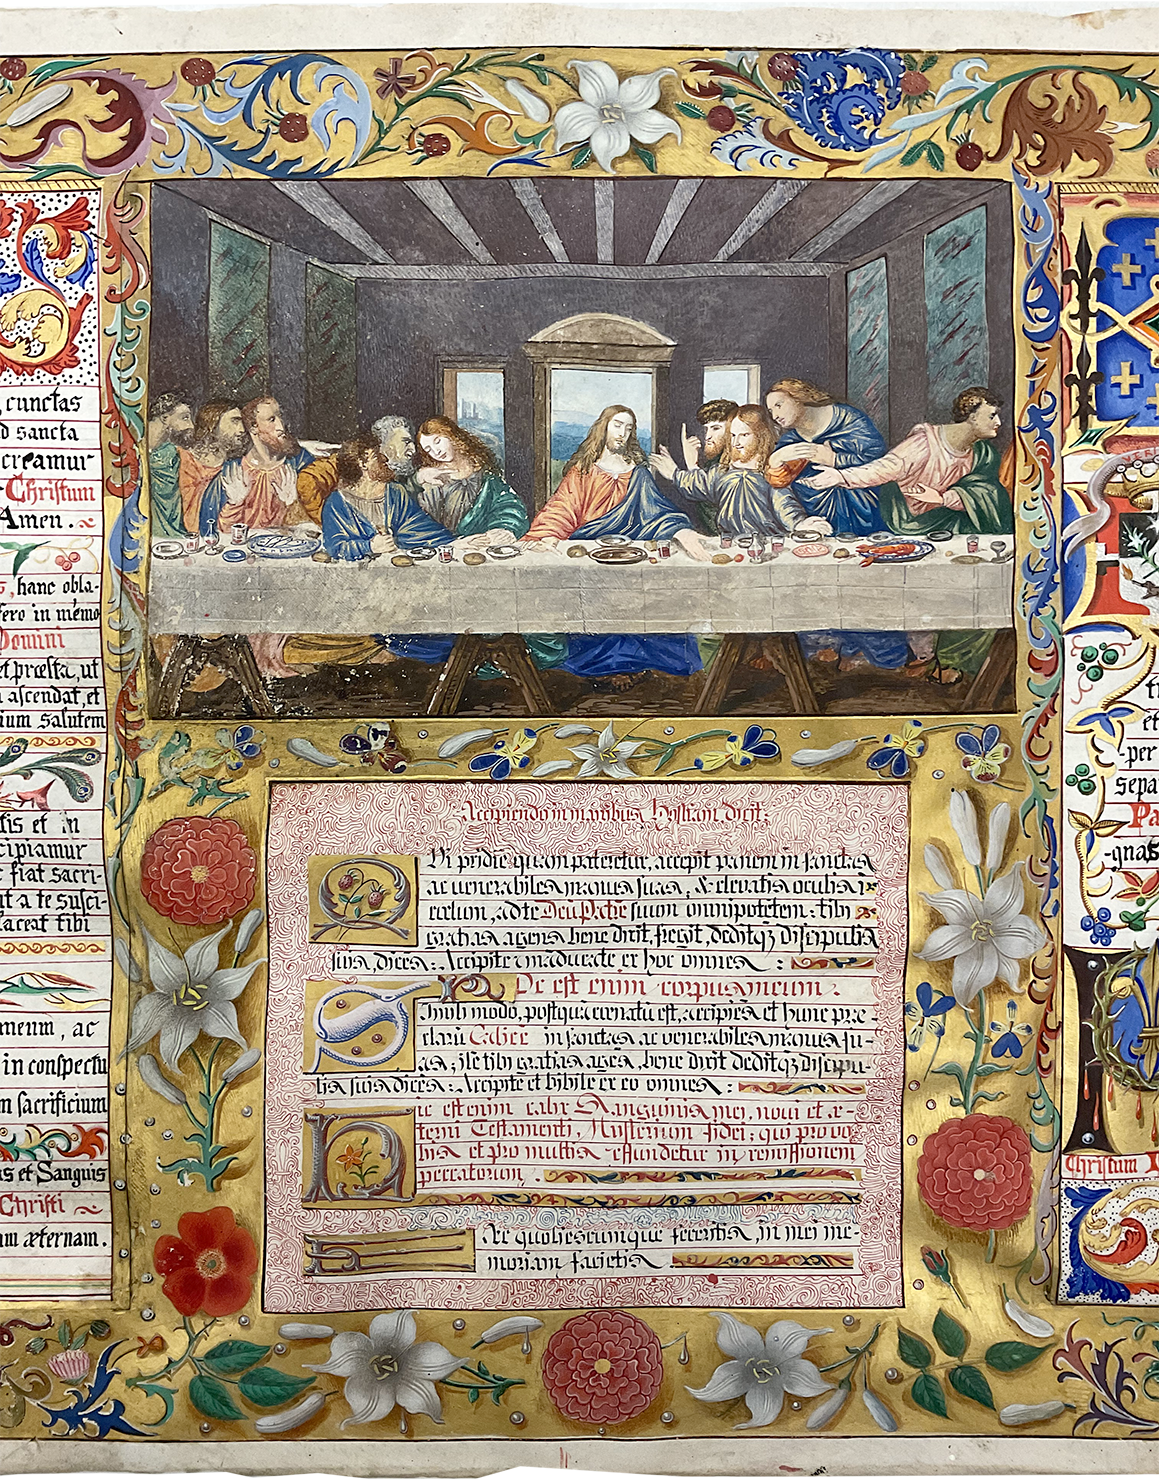 , cunctas
d sancta
creamur
Christum
Amen.
, hanc obla-
fero in memo
Domini
et præsta, ut
ascendat, et
ium salutem
tis et in
cipiamur
fiat sacri-
ut a te susci-
laceat tibi
meum, ac
in conspectu
m sacrificium
us et Sanguis
Christi
am æternam.
Accipiendo in manibus Hostiam dicit:
Qui pridie quam pateretur, accepit panem in sanctas
ac venerabiles manus suas, & elevatis oculis in
cœlum, ad te Deū Patrē suum omnipotētem: tibi
gratias agens bene dixit, fregit, deditq; discipulis
suis, dicēs: Accipite et manducate ex hoc omnes:
Hoc est enim corpus meum:
Simili modo, postquā cœnatū est, accipiēs et hunc præ-
clarū Calicē in sanctas ac venerabiles manus su-
as, itē tibi gratias agēs, bene dixit deditq; discipu-
lis suis dicēs: Accipite et bibite ex eo omnes:
Hic est enim calix Sanguinis mei, novi et æ-
terni Testamenti, Mysterium fidei; qui pro vo-
bis et pro multis effundetur in remissionem
peccatorum.
Hæc quotiescumque feceritis, in mei me-
moriam facietis
et
-per
separ
Pa
-quas
Christum